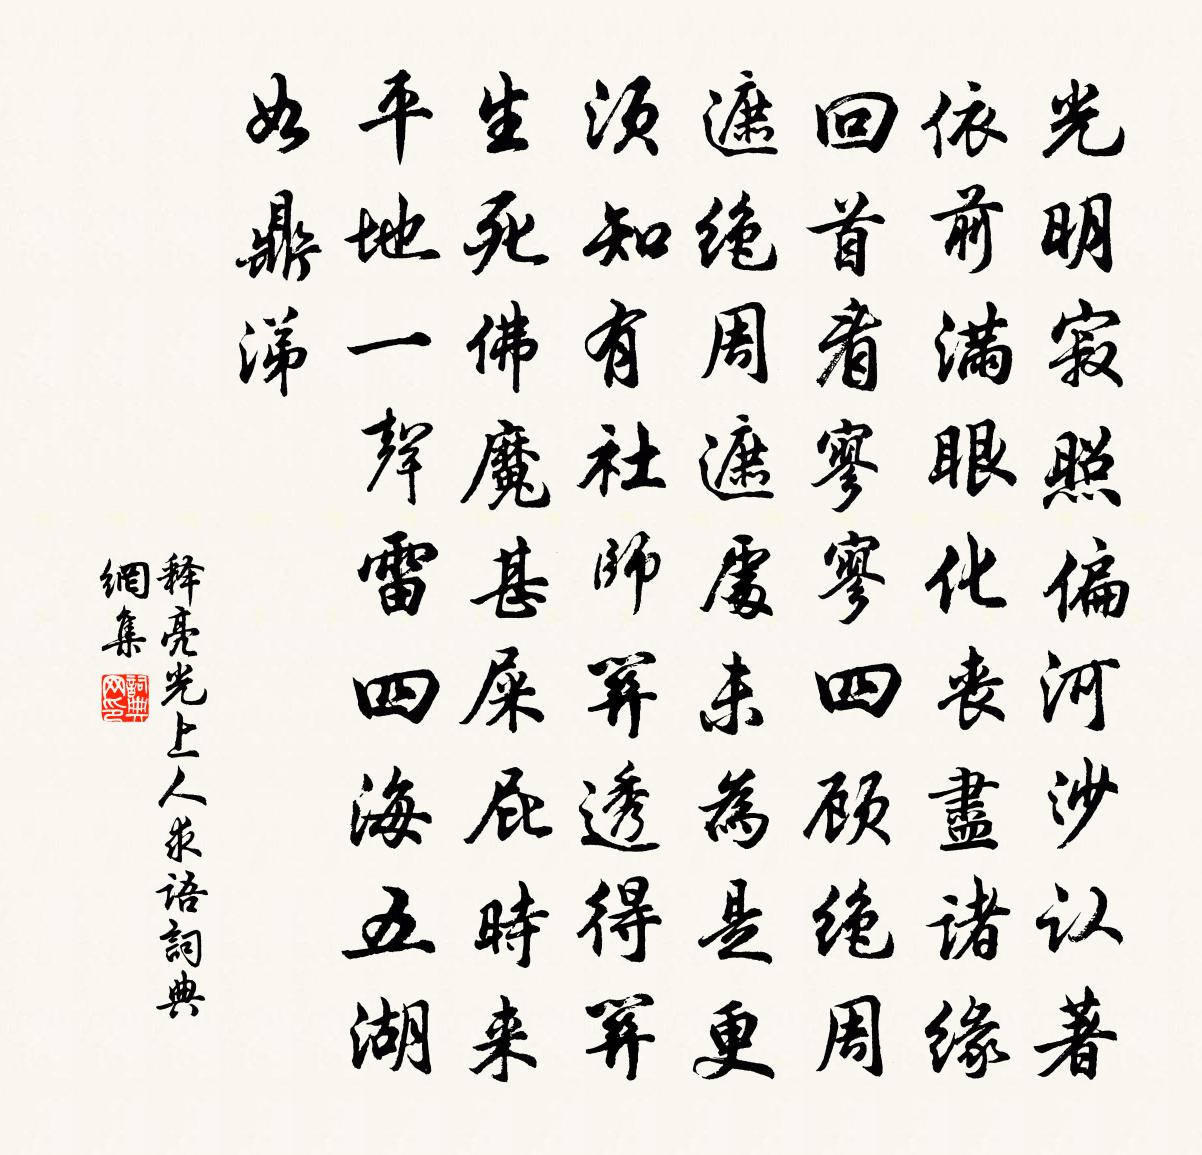 光明寂照偏河沙认著
依前满眼化丧盡诸缘
回首看寥寥四顾绝周
遮绝周遮處未為是更
须知有社师关透得关
生死佛魔甚屎屁時来
平地一聲雷四海五湖
如鼎沸
释亮光上人求语詞典
網集
詞典
网印